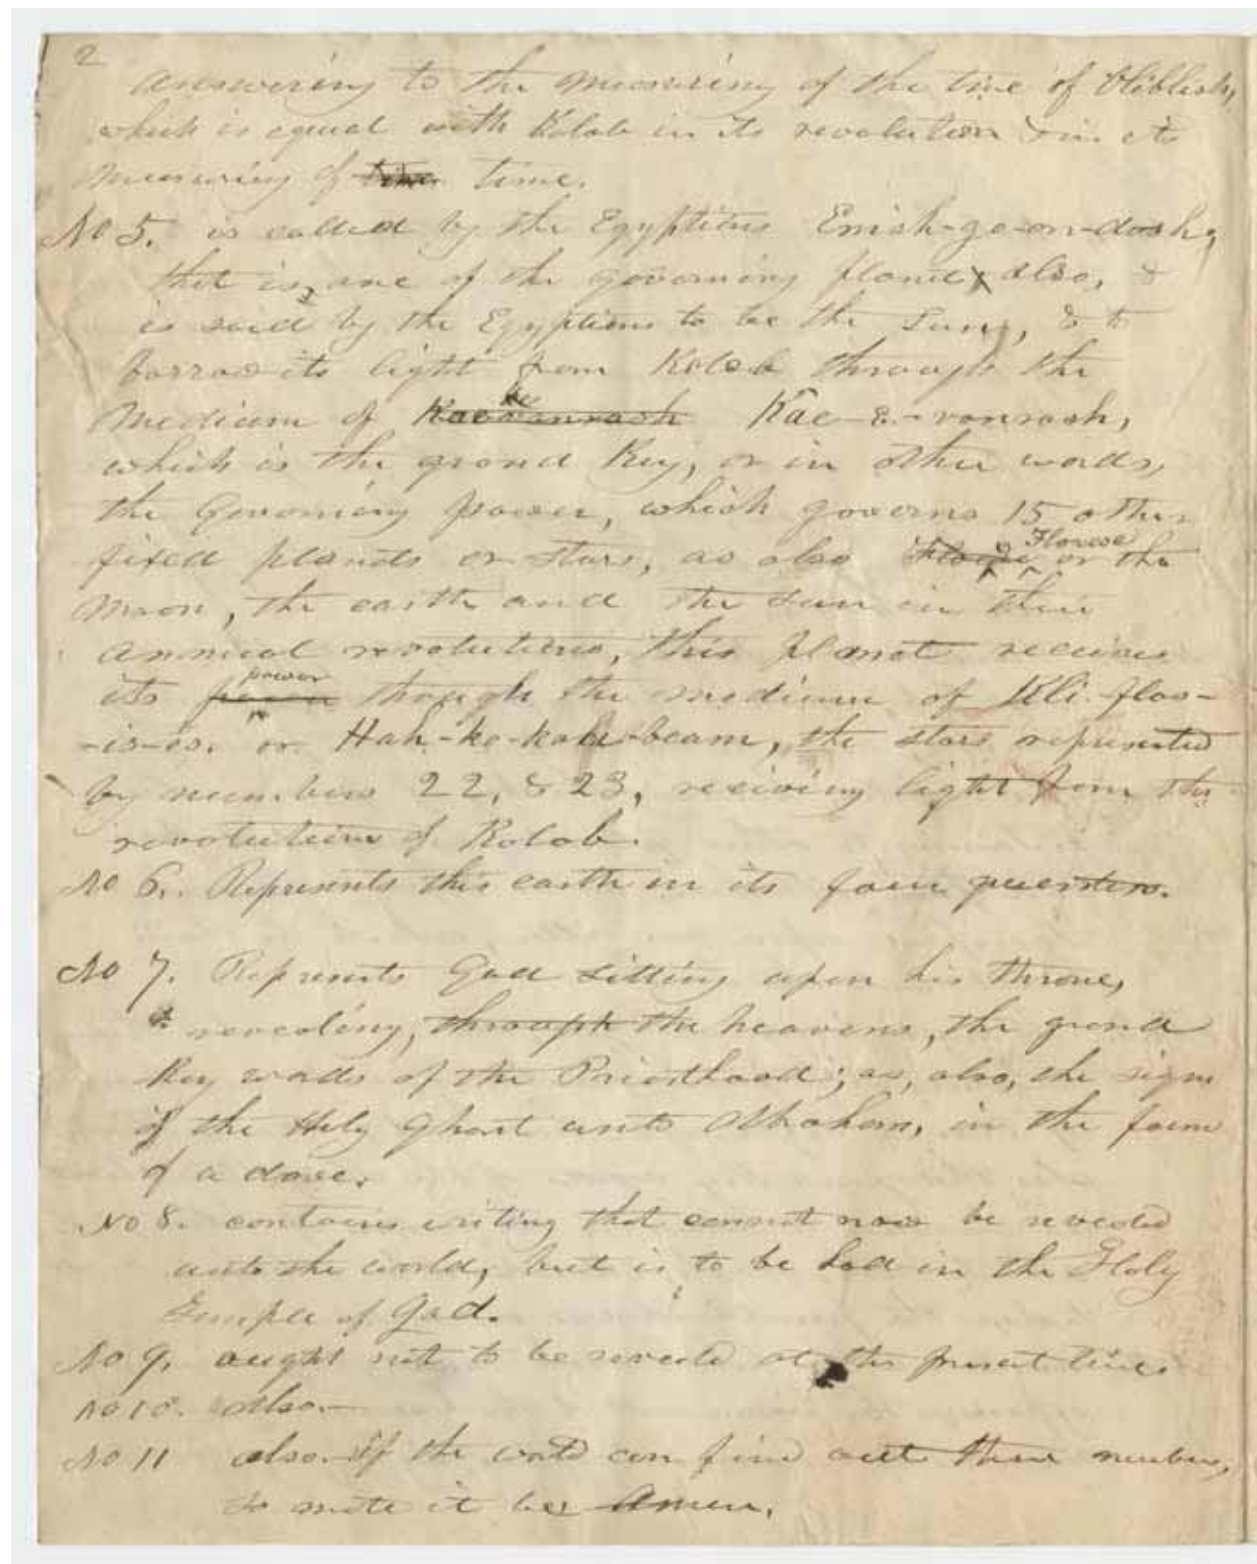 2
answering to the measuring of the time of Oliblish,
which is equal with Kolob in its revolution & in its
measuring of time time.
No 5. is called by the Egyptians Enish-go-on-dosh,
that is, one of the governing planets also, &
is said by the Egyptians to be the Sun, & to
borrow its light from Kolob through the
medium of Kae-e-vonrash,
which is the grand Key, or in other words,
the Governing power, which governs 15 other
fixed planets or stars, as also Floeese or the
Moon, the earth and the sun in their
annual revolutions, this planet receives
its power through the medium of Kli-flos-
-is-es. or Hah-ko-kau-beam, the stars represented
by numbers 22, & 23, receiving light from the
revolutions of Kolob.
No 6. Represents this earth in its four quarters.
No 7. Represents God sitting upon his throne,
revealing, through the heavens, the grand
Key words of the Priesthood; as, also, the sign
of the Holy Ghost unto Abraham, in the form
of a dove.
No 8. contains writing that cannot now be revealed
unto the world, but is to be had in the Holy
Temple of God.
No 9. ought not to be reveald at the present time
No 10. also.—
No 11 also. If the world can find out these numbers,
so mote it be Amen.